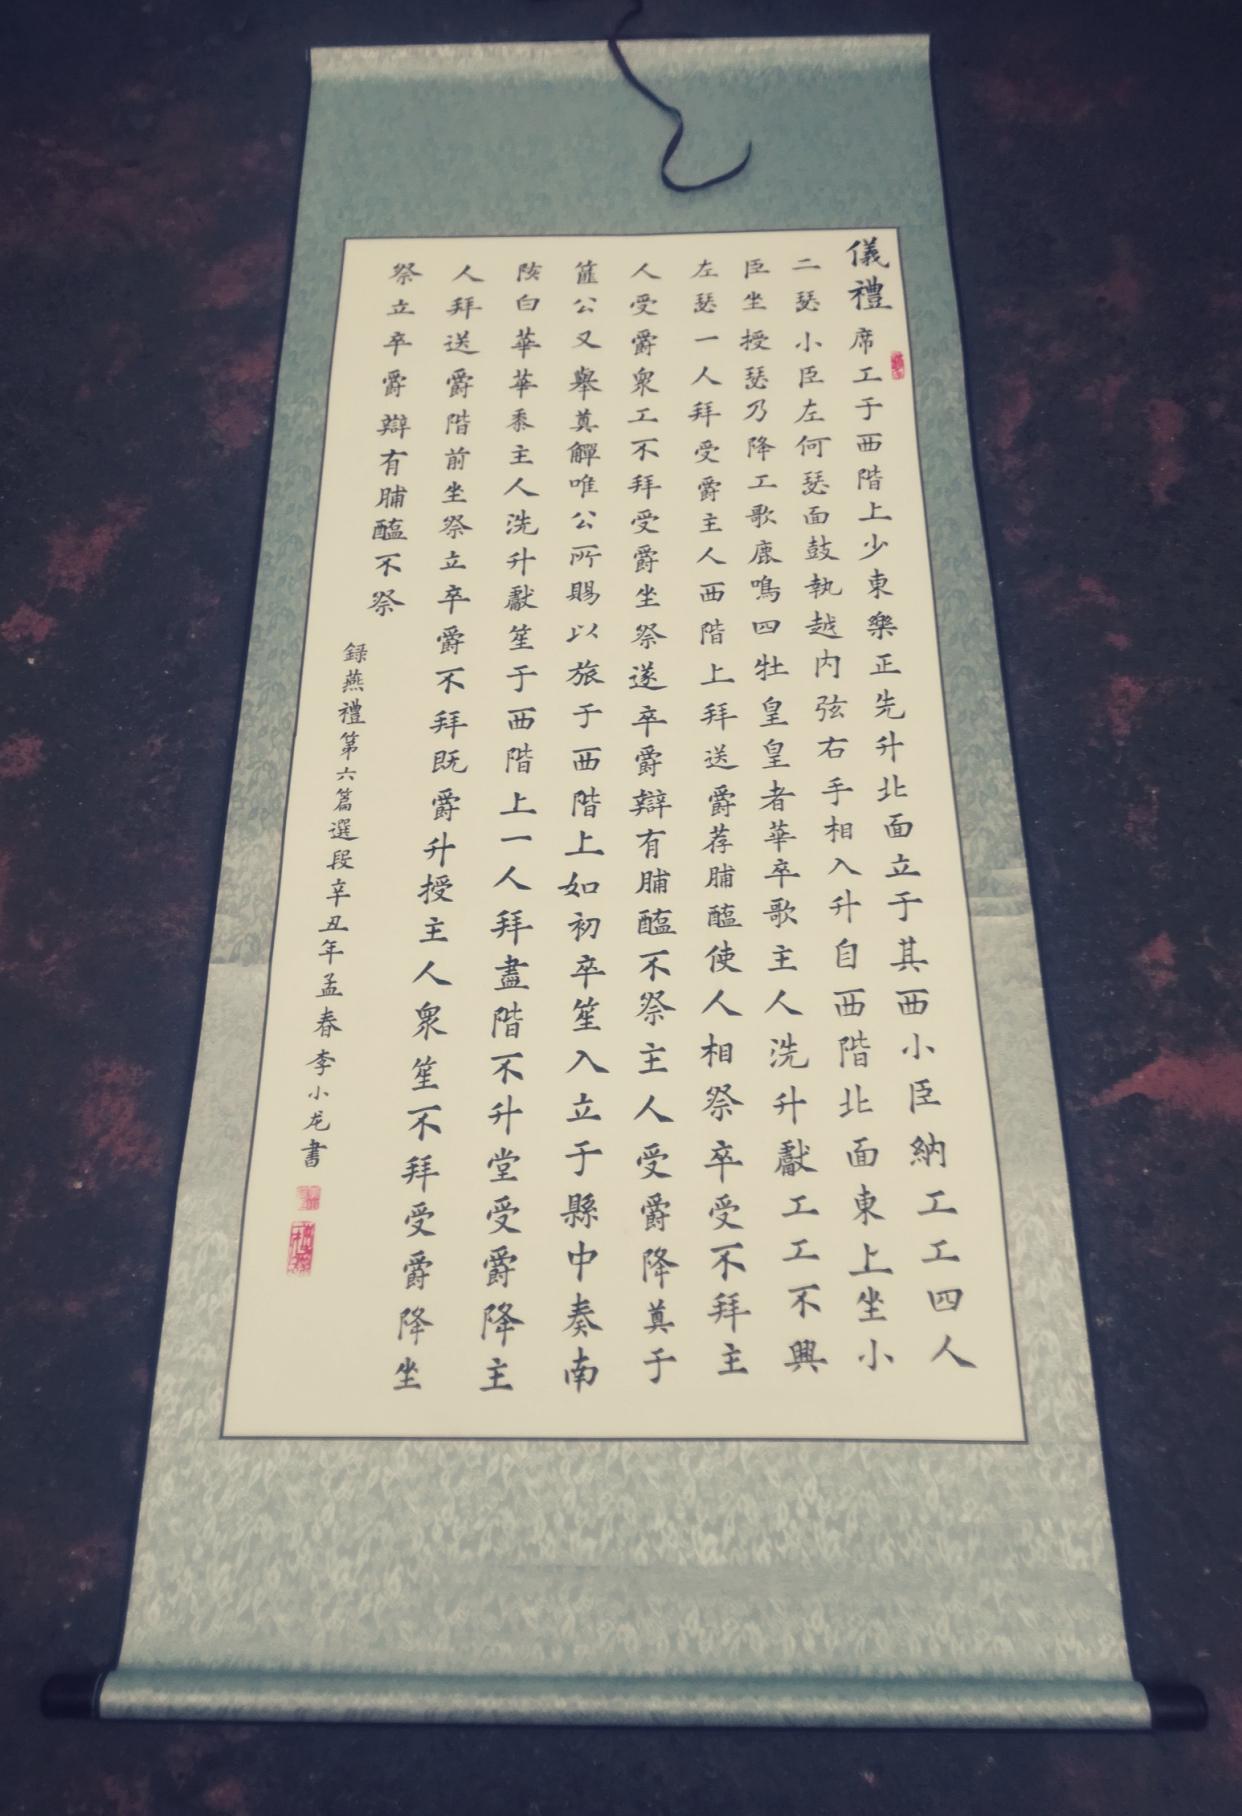 儀禮席工于西階上少東樂正先升北面立于其西小臣納工工四人
二瑟小臣左何瑟面鼓執越内弦右手相入升自西階北面東上坐小
臣坐授瑟乃降工歌鹿鳴四牡皇皇者華卒歌主人洗升獻工工不興
左瑟一人拜受爵主人西階上拜送爵荐脯醢使人相祭卒受不拜主
人受爵衆工不拜受爵坐祭遂卒爵辯有脯醢不祭主人受爵降奠于
篚公又舉奠觶唯公所賜以旅于西階上如初卒笙入立于縣中奏南
陔白華華黍主人洗升獻笙于西階上一人拜盡階不升堂受爵降主
人拜送爵階前坐祭立卒爵不拜既爵升授主人衆笙不拜受爵降坐
祭立卒爵辯有脯醢不祭
録燕禮第六篇選段辛丑年孟春李小龙書